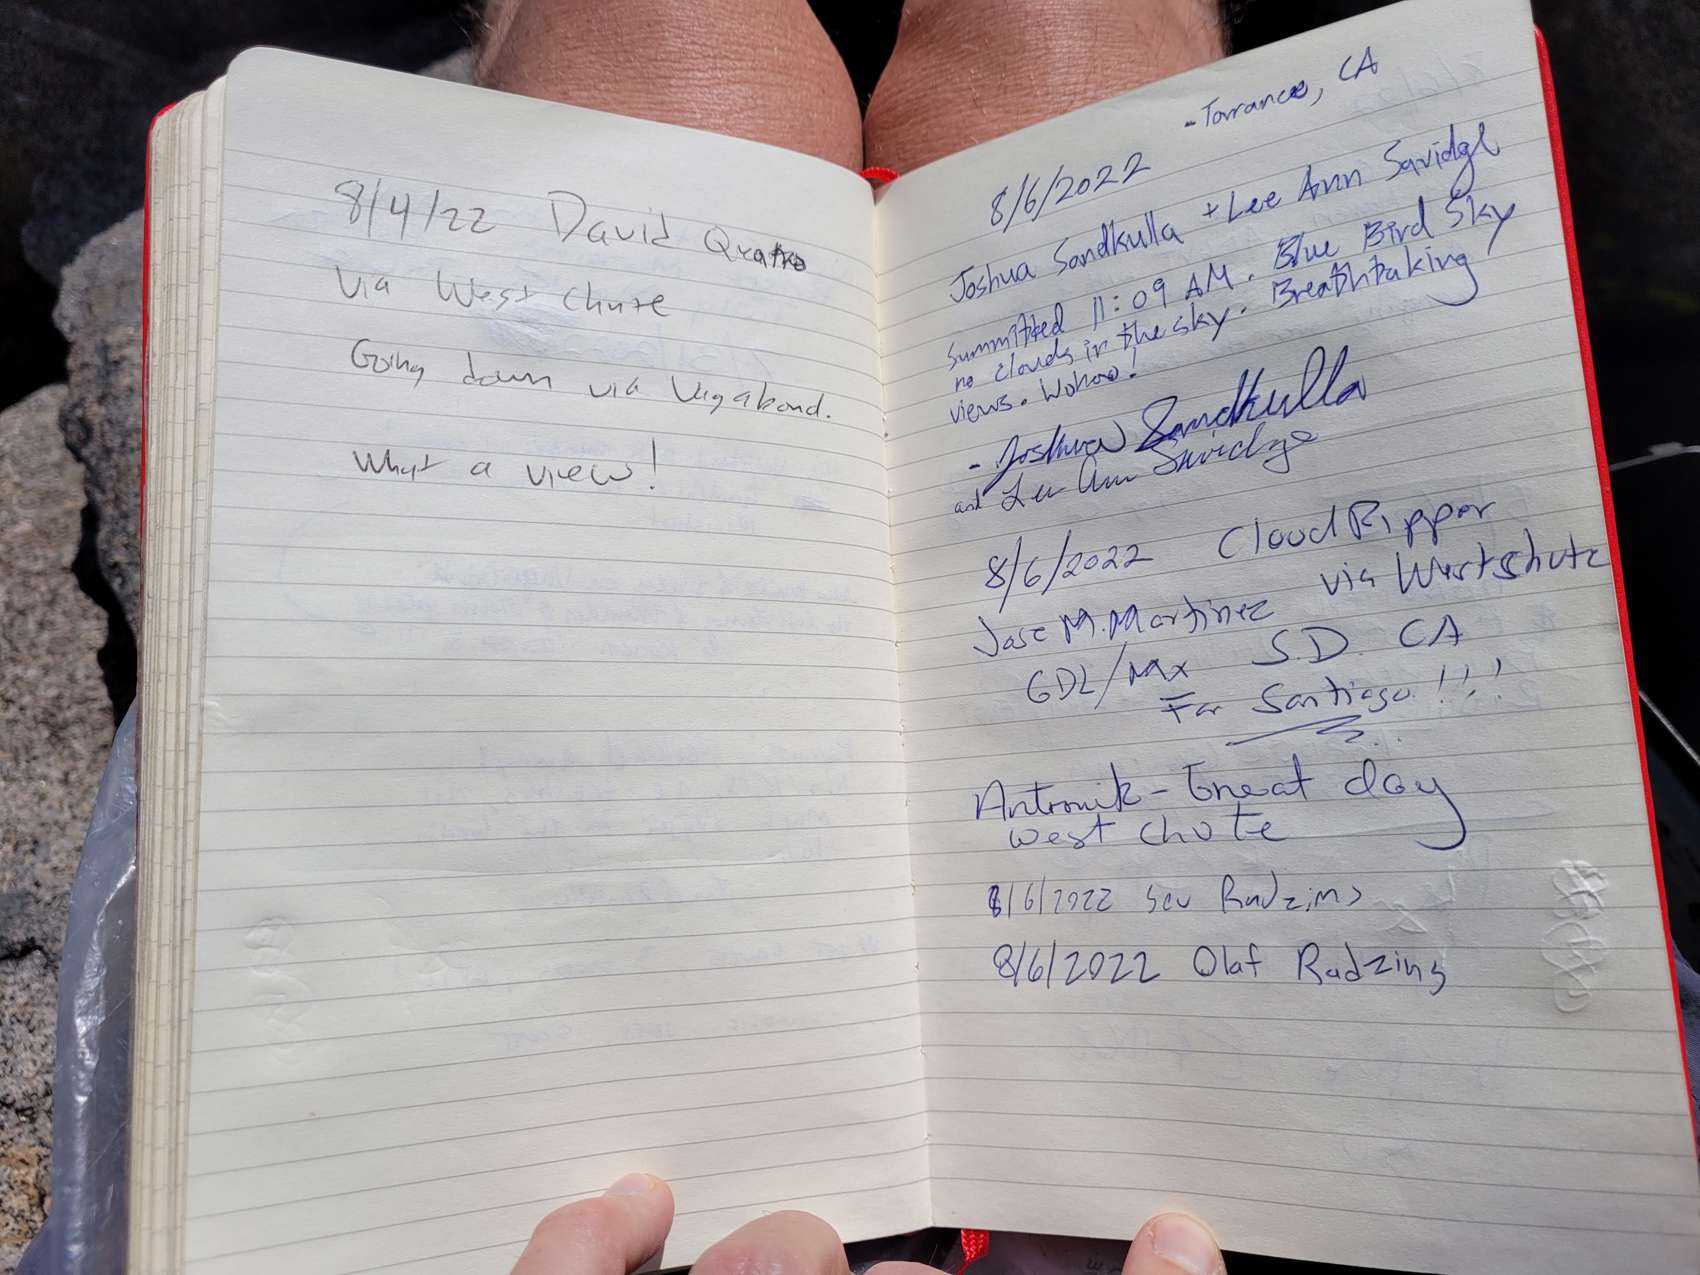 8/4/22 David
via West Chute
Going down via Vagabond.
What a view!
- Torrance, CA
8/6/2022
Joshua Sandkulla + Lee Ann Savidge
Summitted 11:09 AM. Blue Bird Sky
no clouds in the sky. Breathtaking
views. Wohoo!
- Joshua Sandkulla
and Lee Ann Savidge
8/6/2022 Cloud Ripper
via
Jose M. Martinez
GDL/Mx S.D. CA
For Santiago!!!
Antronik - Great day
West chute
8/6/2022 Radzins
8/6/2022 Olaf Radzins